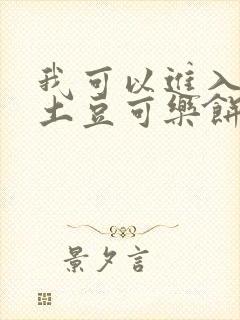 我可以進入
土豆可樂餅
景夕言